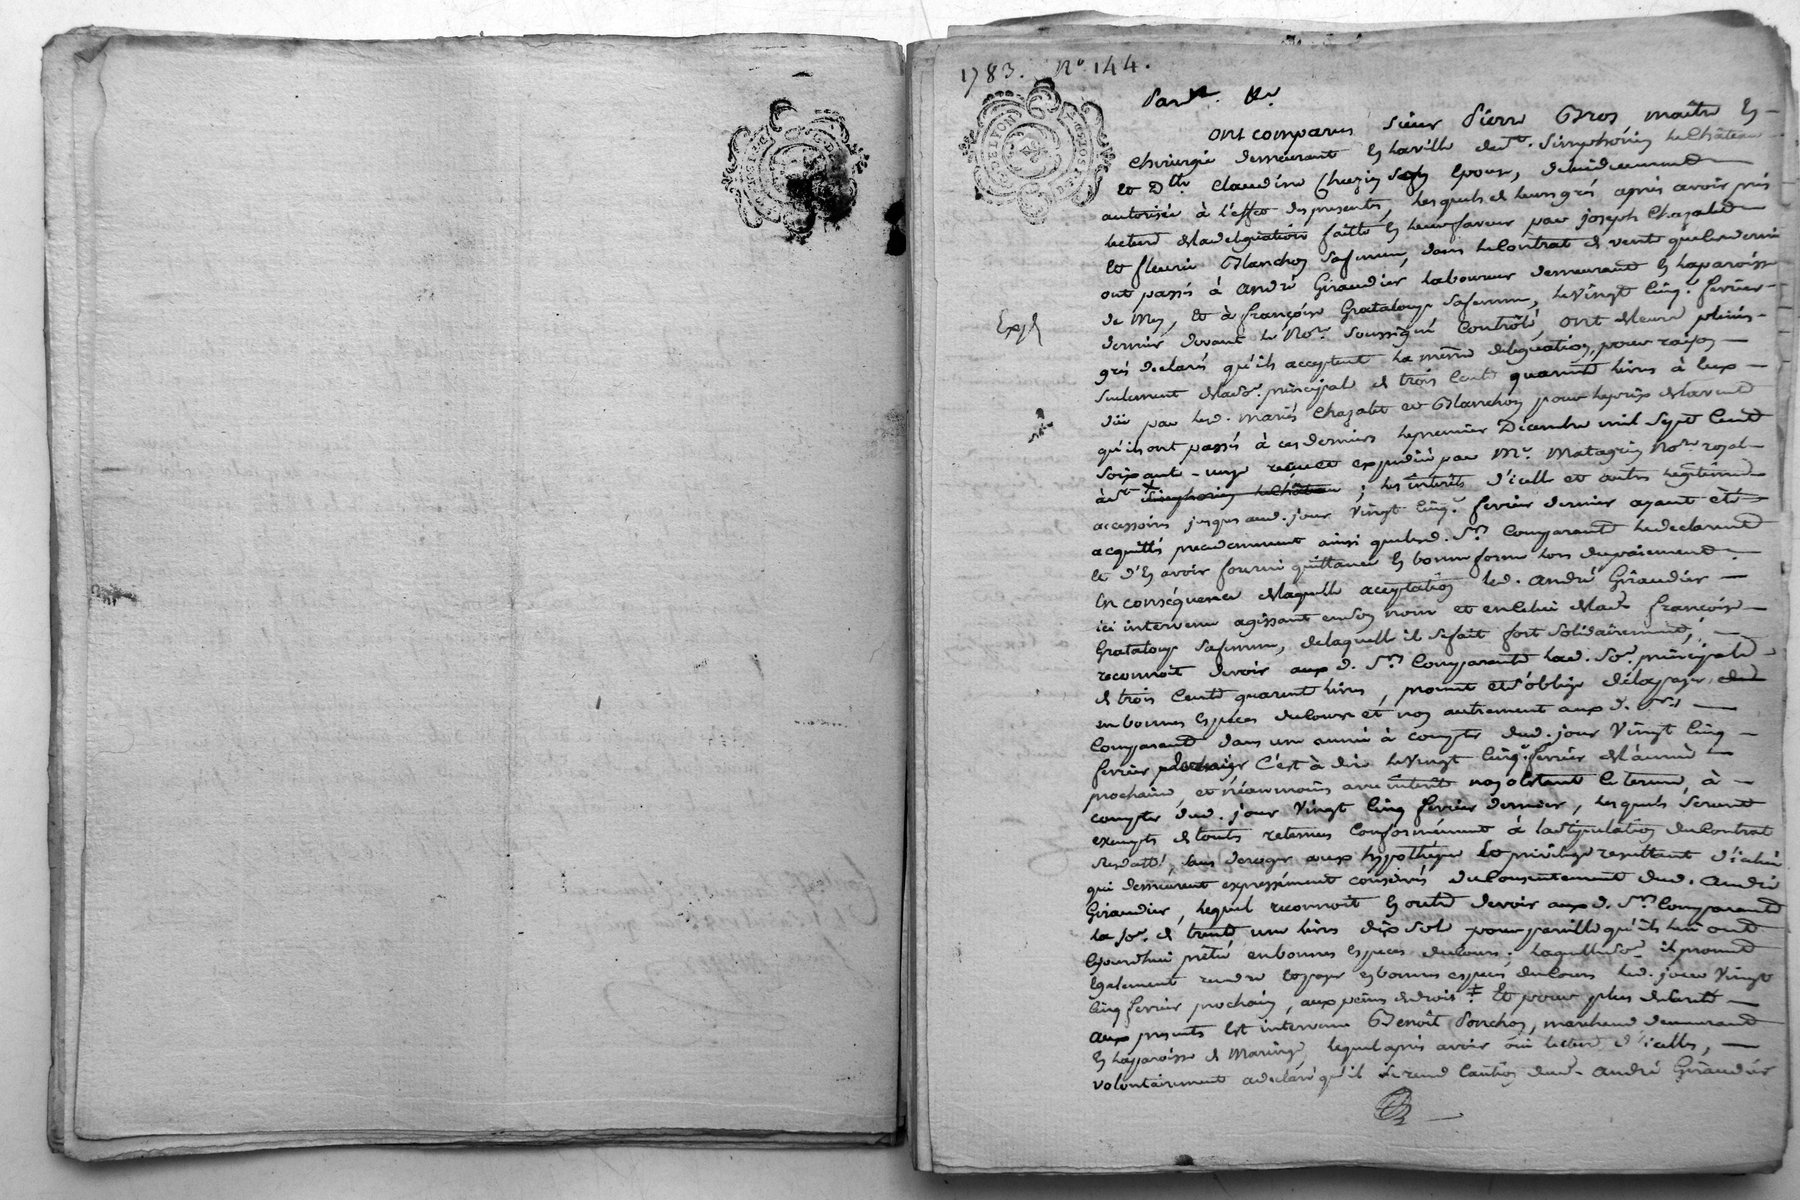 1783. N° 144.
Pard.t N.re
ont comparus sieur Pierre Gros, maître En
chirurgie demeurant En la ville de St. Simphorien le Château
et Dlle. Claudine Chezin son Epouse, de lui dueument
autorisée à l'effet des presentes, lesquels de leurs gré après avoir pris
lecture de la delegation faitte En leur faveur par joseph Chazalet
et fleurie Blanchon sa femme, dans le Contrat de vente que ces derniers
ont passés à andré Giraudier laboureur demeurant En la paroisse
de Mey, et à françoise Grataloup sa femme, le vingt Cinq. fevrier
dernier devant le No.re soussigné Contrôlé, ont de leurs pleins
Exp.é
gré declaré qu'ils acceptent la même delegation, pour raison
seulement de la So.e principale de trois Cent quarente livres à Eux
düe par les d. mariés Chazalet et Blanchon pour le prix de la vente
qu'ils ont passés à ces derniers le premier Décembre mil sept Cent
soixante-onze recue et expediée par Me. Matagrin No.re royal
à St. Simphorien le Château ; les interets d'icelle et autres legitimes
accessoires jusques aud. jour vingt Cinq. fevrier dernier ayant été
acquittés precedemment ainsi que les d. Srs. Comparants le declarent
et d'En avoir fourni quittance En bonne forme lors du paiement.
En conséquence de laquelle acceptation led. andré Giraudier
ici intervenu agissant en son nom et en Celui de lad. françoise
Grataloup sa femme, de laquelle il se fait fort solidairement,
reconnoit devoir aux d. Srs. Comparants lad. So.e principale
de trois Cent quarente livres, promet et s'oblige de la payer
en bonnes Especes du Cours et non autrement aux d. Srs.
Comparants dans une année à compter dud. jour vingt Cinq
fevrier dernier C'est à dire le vingt Cinq. fevrier de l'année
prochaine, et néanmoins avec interêt nonobstant le terme, à
compter dud. jour vingt Cinq fevrier dernier, lesquels seront
exempts de toutes retenues Conformément à la stipulation du Contrat
susdatté, sans deroger aux hypothèque et privilege resultent d'icelui
qui demeurent expressément conservés du Consentement dud. andré
Giraudier, lequel reconnoit En outre devoir aux d. Srs. Comparants
la So.e de trente une livres dix sol pour pareille qu'ils lui ont
Cejourdhui prêté en bonnes Especes du Cours, laquelle So.e il promet
Egalement rendre et payer en bonnes especes du Cours led. jour vingt
Cinq fevrier prochain, aux peines de droit ‡ Et pour plus de sureté
aux presentes Est intervenu Benoît Ponchon, marchand demeurant
En la paroisse de Maringe, lequel après avoir oui lecture d'icelles,
volontairement a declaré qu'il se rend Caution dud. andré Giraudier